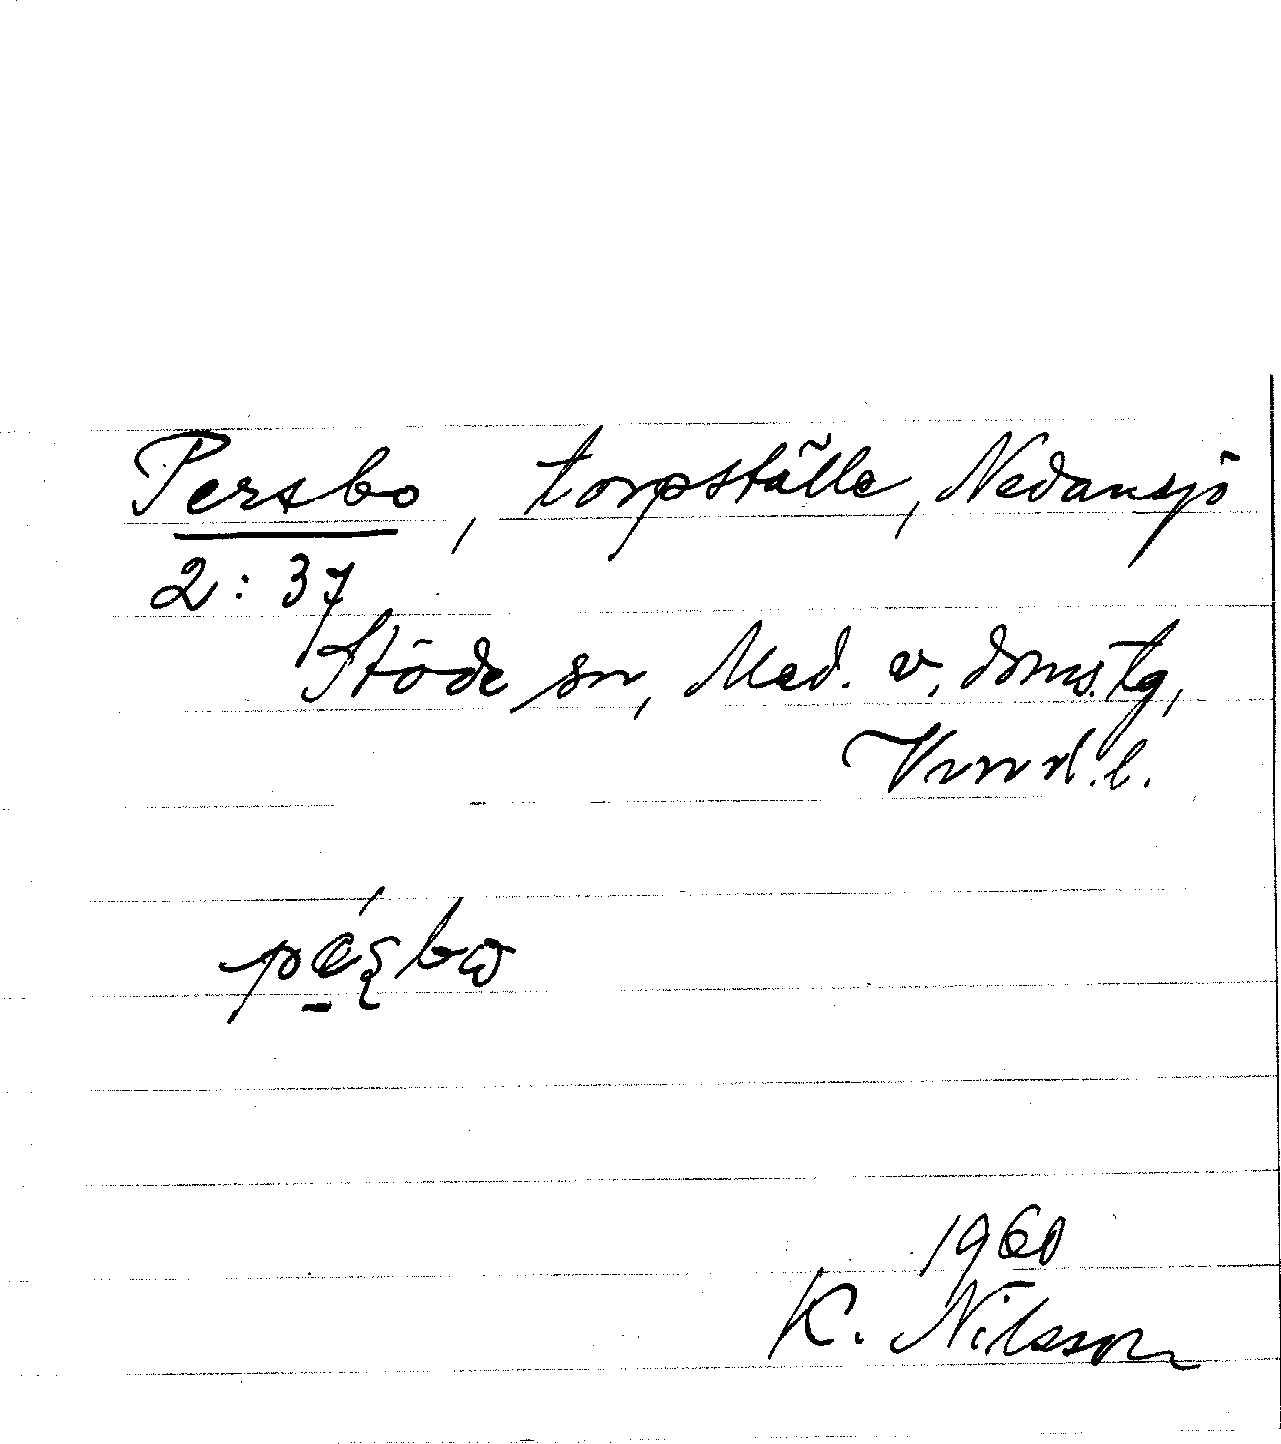 Persbo, torpställe, Nedansjö
2:37
Stöde sn, Med. v. doms.tg,
Vnrd.l.
1960
K. Nilsson